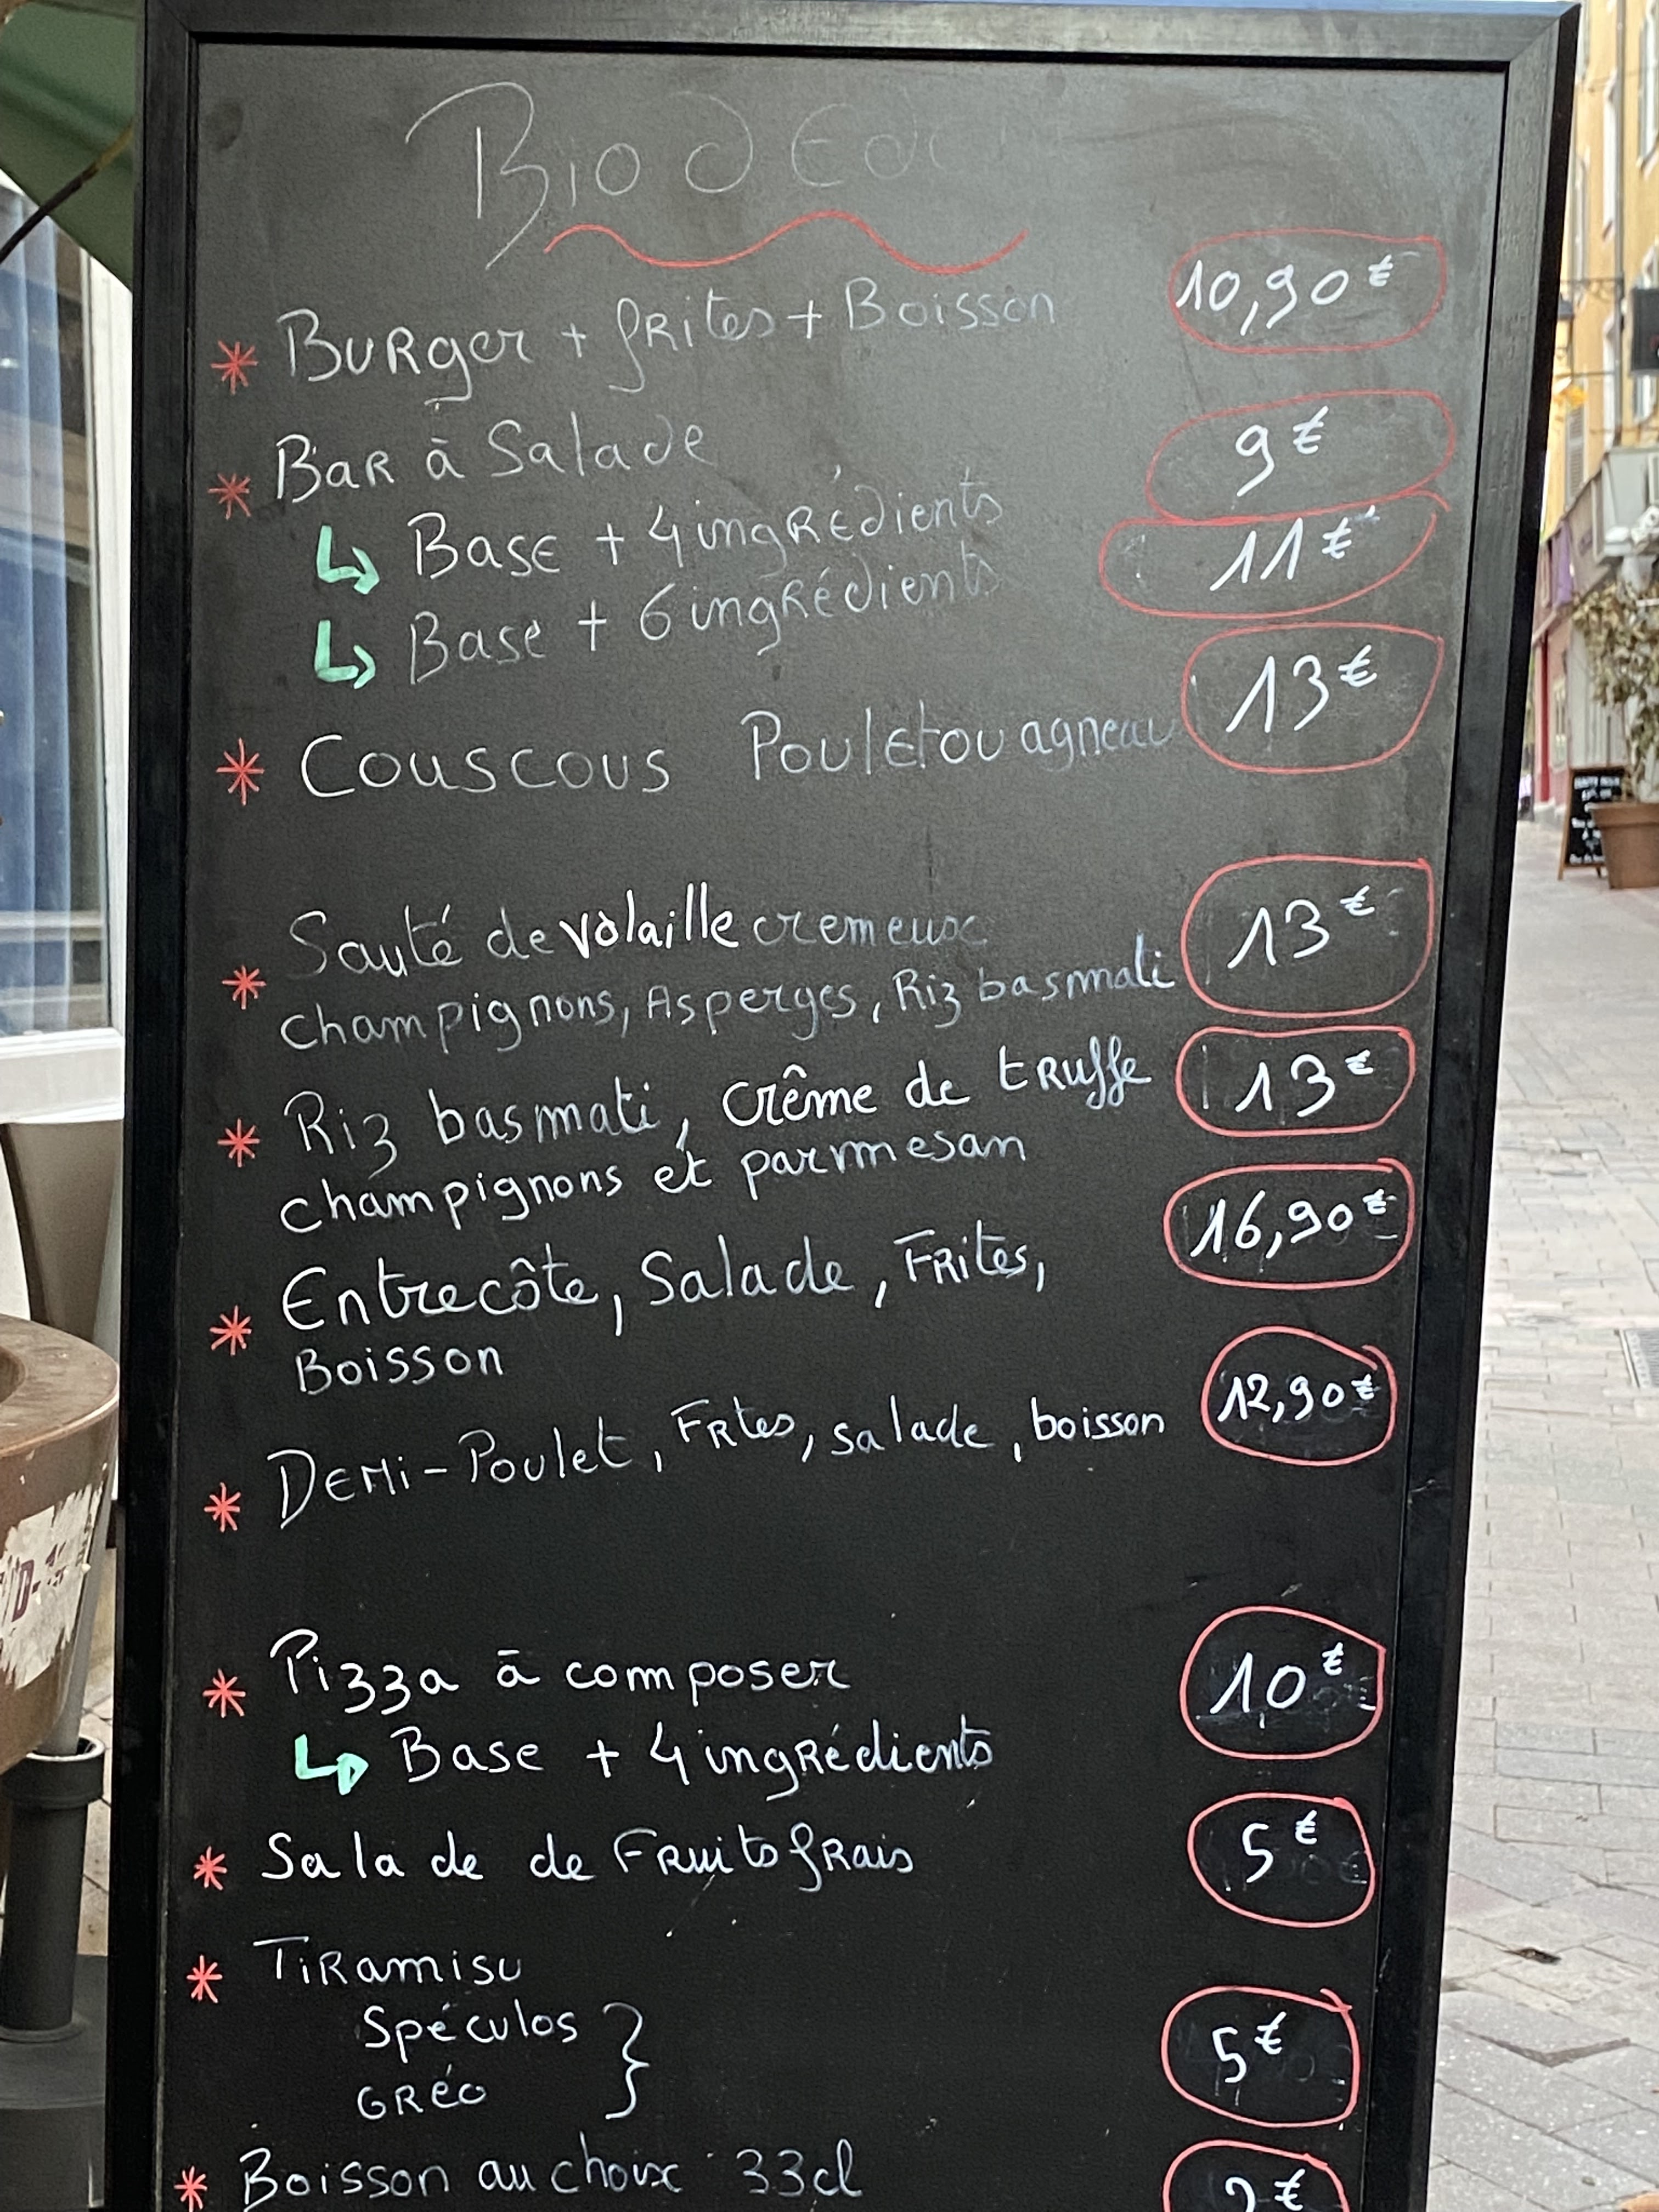 Bio d Eden
* Burger + frites + Boisson 10,90 €
* Bar à Salade
↳ Base + 4 ingrédients 9 €
↳ Base + 6 ingrédients 11 €
* Couscous Poulet ou agneau 13 €
* Sauté de volaille cremeux 13 €
champignons, Asperges, Riz basmati
* Riz basmati, crême de truffe 13 €
champignons et parmesan
* Entrecôte, Salade, Frites, 16,90 €
Boisson
* Demi-Poulet, Frtes, salade, boisson 12,90 €
* Pizza à composer 10 €
↳ Base + 4 ingrédients
* Salade de Fruits frais 5 €
* Tiramisu
Spéculos
Oréo } 5 €
* Boisson au choix 33cl 2 €